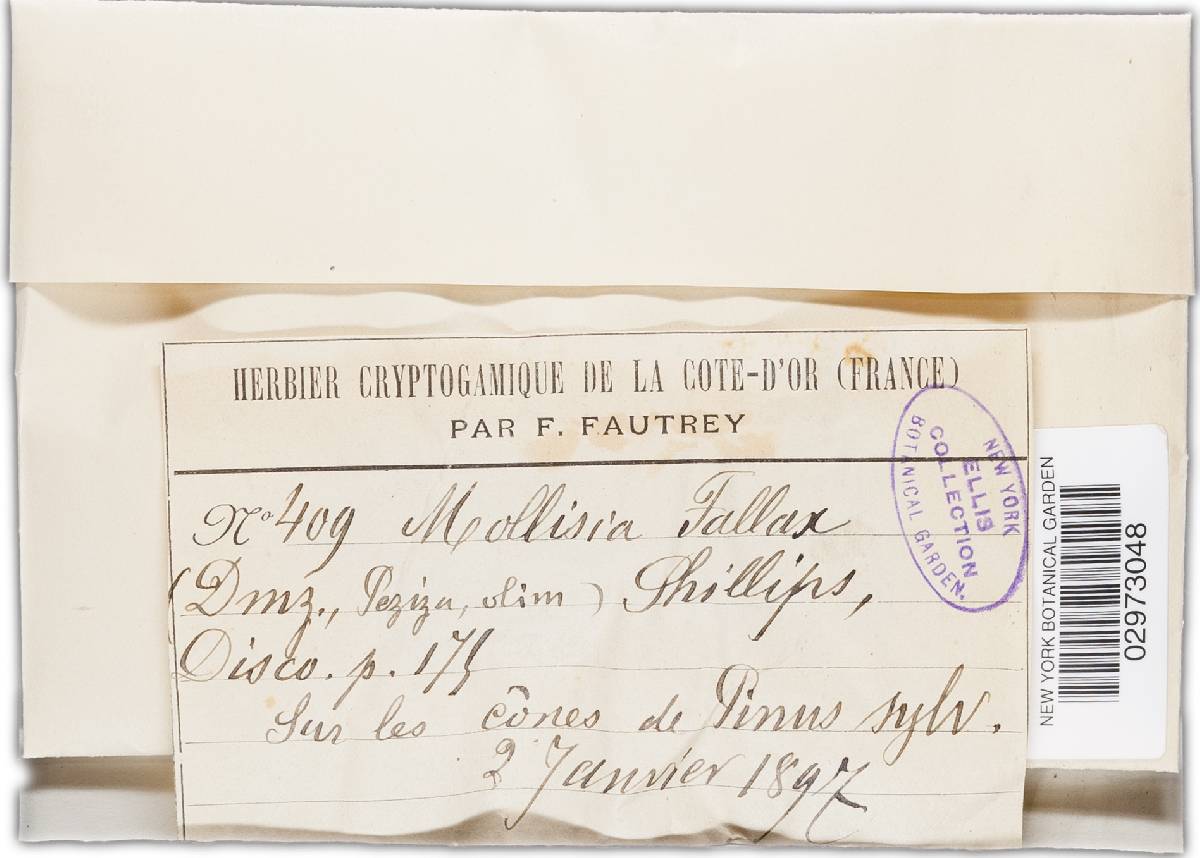 HERBIER CRYPTOGAMIQUE DE LA COTE-D'OR (FRANCE)
PAR F. FAUTREY
No 409 Mollisia Fallax
(Dmz., Peziza, olim) Phillips,
Disco. p. 175
Sur les cônes de Pinus sylv.
2 Janvier 1897
NEW YORK
ELLIS
COLLECTION
BOTANICAL GARDEN.
NEW YORK BOTANICAL GARDEN
02973048